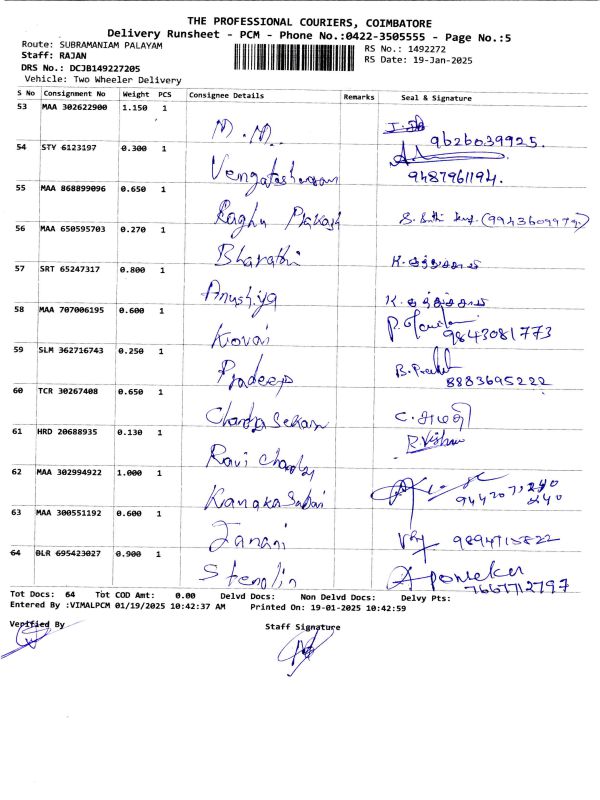 THE PROFESSIONAL COURIERS, COIMBATORE
Delivery Runsheet - PCM - Phone No.:0422-3505555 - Page No.:5
Route: SUBRAMANIAM PALAYAM
RS No.: 1492272
Staff: RAJAN
RS Date: 19-Jan-2025
DRS No.: DCJB149227205
Vehicle: Two Wheeler Delivery
S No Consignment No Weight PCS Consignee Details Remarks Seal & Signature
53 MAA 302622900 1.150 1 M.M. 9626039925.
54 STY 6123197 0.300 1 9487961194.
55 MAA 868899096 0.650 1 Raghu Prakash
56 MAA 650595703 0.270 1 Bharathi
57 SRT 65247317 0.800 1 Anushiya
58 MAA 707006195 0.600 1 Kovai 9843081773
59 SLM 362716743 0.250 1 Pradeep 8883695222
60 TCR 30267408 0.650 1 Chandra Sekar
61 HRD 20688935 0.130 1 Ravi R.Vishnu
62 MAA 302994922 1.000 1
63 MAA 300551192 0.600 1 Janani 9894715822
64 BLR 695423027 0.900 1 Stenolin
Tot Docs: 64 Tot COD Amt: 0.00 Delvd Docs: Non Delvd Docs: Delvy Pts:
Entered By :VIMALPCM 01/19/2025 10:42:37 AM Printed On: 19-01-2025 10:42:59
Verified By Staff Signature